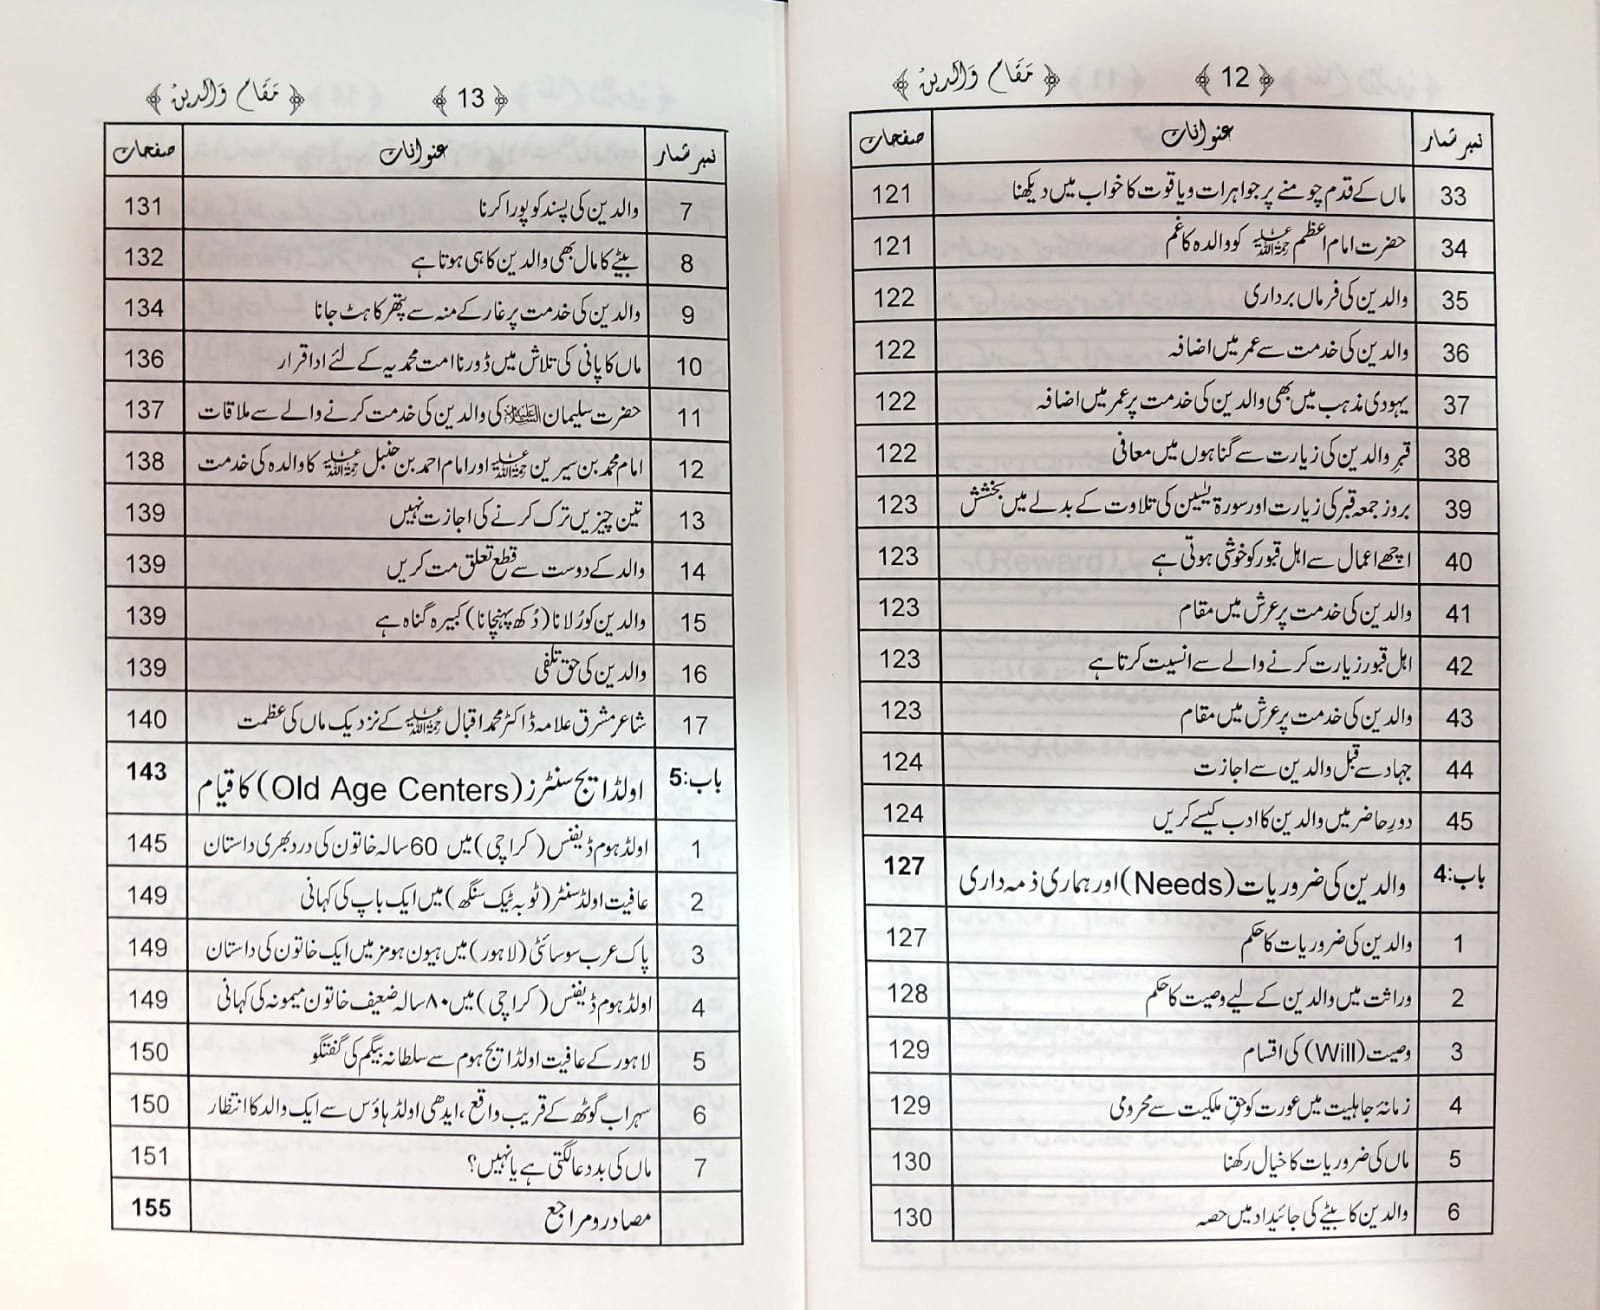 ﴿ 12 ﴾ مقام والدین
نمبر شمار عنوانات صفحات
33 ماں کے قدم چومنے پر جواہرات و یاقوت کا خواب میں دیکھنا 121
34 حضرت امام اعظم رحمۃ اللہ علیہ کو والدہ کا غم 121
35 والدین کی فرماں برداری 122
36 والدین کی خدمت سے عمر میں اضافہ 122
37 یہودی مذہب میں بھی والدین کی خدمت پر عمر میں اضافہ 122
38 قبرِ والدین کی زیارت سے گناہوں میں معافی 122
39 بروز جمعہ قبر کی زیارت اور سورۃ یٰسین کی تلاوت کے بدلے میں بخشش 123
40 اچھے اعمال سے اہل قبور کو خوشی ہوتی ہے 123
41 والدین کی خدمت پر عرش میں مقام 123
42 اہل قبور زیارت کرنے والے سے انسیت کرتا ہے 123
43 والدین کی خدمت پر عرش میں مقام 123
44 جہاد سے قبل والدین سے اجازت 124
45 دورِ حاضر میں والدین کا ادب کیسے کریں 124
باب:4 والدین کی ضروریات (Needs) اور ہماری ذمہ داری 127
1 والدین کی ضروریات کا حکم 127
2 وراثت میں والدین کے لیے وصیت کا حکم 128
3 وصیت (Will) کی اقسام 129
4 زمانۂ جاہلیت میں عورت کو حقِ ملکیت سے محرومی 129
5 ماں کی ضروریات کا خیال رکھنا 130
6 والدین کا بیٹے کی جائیداد میں حصہ 130
﴿ 13 ﴾ مقام والدین
نمبر شمار عنوانات صفحات
7 والدین کی پسند کو پورا کرنا 131
8 بیٹے کا مال بھی والدین کا ہی ہوتا ہے 132
9 والدین کی خدمت پر غار کے منہ سے پتھر کا ہٹ جانا 134
10 ماں کا پانی کی تلاش میں دُورنا امت محمدیہ کے لئے ادا قرار 136
11 حضرت سلیمان علیہ السلام کی والدین کی خدمت کرنے والے سے ملاقات 137
12 امام محمد بن سیرین رحمۃ اللہ علیہ اور امام احمد بن حنبل رحمۃ اللہ علیہ کا والدہ کی خدمت 138
13 تین چیزیں ترک کرنے کی اجازت نہیں 139
14 والد کے دوست سے قطع تعلق مت کریں 139
15 والدین کو رُلانا (دُکھ پہنچانا) کبیرہ گناہ ہے 139
16 والدین کی حق تلفی 139
17 شاعر مشرق علامہ ڈاکٹر محمد اقبال رحمۃ اللہ علیہ کے نزدیک ماں کی عظمت 140
باب:5 اولڈ ایج سنٹرز (Old Age Centers) کا قیام 143
1 اولڈ ہوم ڈیفنس (کراچی) میں 60 سالہ خاتون کی درد بھری داستان 145
2 عافیت اولڈ سنٹر (ٹوبہ ٹیک سنگھ) میں ایک باپ کی کہانی 149
3 پاک عرب سوسائٹی (لاہور) میں ہیون ہومز میں ایک خاتون کی داستان 149
4 اولڈ ہوم ڈیفنس (کراچی) میں ۸۰ سالہ ضعیف خاتون میمونہ کی کہانی 149
5 لاہور کے عافیت اولڈ ایج ہوم سے سلطانہ بیگم کی گفتگو 150
6 سہراب گوٹھ کے قریب واقع، ایدھی اولڈ ہاؤس سے ایک والد کا انتظار 150
7 ماں کی بددعا لگتی ہے یا نہیں؟ 151
مصادر و مراجع 155